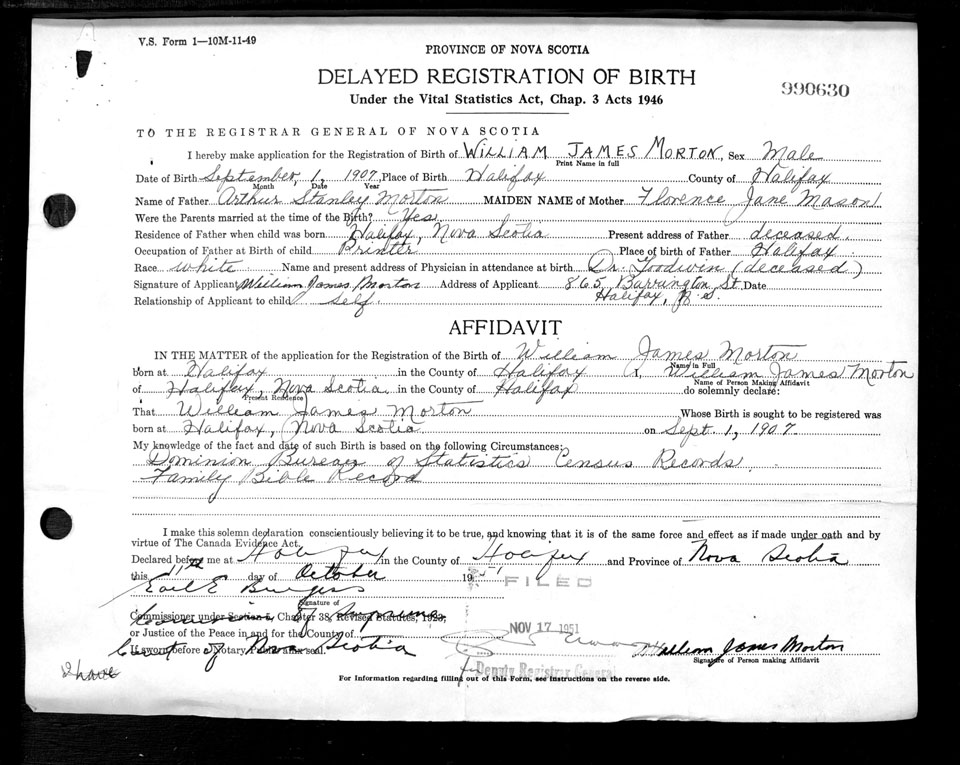 V.S. Form 1—10M-11-49
PROVINCE OF NOVA SCOTIA
DELAYED REGISTRATION OF BIRTH
990630
Under the Vital Statistics Act, Chap. 3 Acts 1946
TO THE REGISTRAR GENERAL OF NOVA SCOTIA
I hereby make application for the Registration of Birth of WILLIAM JAMES MORTON, Sex Male
Print Name in full
Date of Birth September, 1, 1907, Place of Birth Halifax County of Halifax
Month Date Year
Name of Father Arthur Stanley Morton MAIDEN NAME of Mother Florence Jane Mason
Were the Parents married at the time of the Birth? Yes
Residence of Father when child was born Halifax, Nova Scotia Present address of Father deceased.
Occupation of Father at Birth of child Printer Place of birth of Father Halifax
Race white Name and present address of Physician in attendance at birth Dr. Goodwin (deceased)
Signature of Applicant William James Morton Address of Applicant 865 Barrington St. Date
Halifax, N.S.
Relationship of Applicant to child self.
AFFIDAVIT
IN THE MATTER of the application for the Registration of the Birth of William James Morton
Name in Full
born at Halifax in the County of Halifax I, William James Morton
Name of Person Making Affidavit
of Halifax, Nova Scotia in the County of Halifax do solemnly declare:
Present Residence
That William James Morton Whose Birth is sought to be registered was
born at Halifax, Nova Scotia on Sept. 1, 1907.
My knowledge of the fact and date of such Birth is based on the following Circumstances:
Dominion Bureau of Statistics Census Records.
Family Bible Record
I make this solemn declaration conscientiously believing it to be true, and knowing that it is of the same force and effect as if made under oath and by
virtue of The Canada Evidence Act.
Declared before me at Halifax in the County of Halifax and Province of Nova Scotia
this 11th day of October 1951
FILED
Earl E Burgess
Signature of
Commissioner under Section 5, Chapter 38, Revised Statutes, 1923,
of Supreme
NOV 17 1951
or Justice of the Peace in and for the County of
If sworn before a Notary Public affix seal.
Court of Nova Scotia
William James Morton
Signature of Person making Affidavit
Deputy Registrar General
For Information regarding filling out of this Form, see instructions on the reverse side.